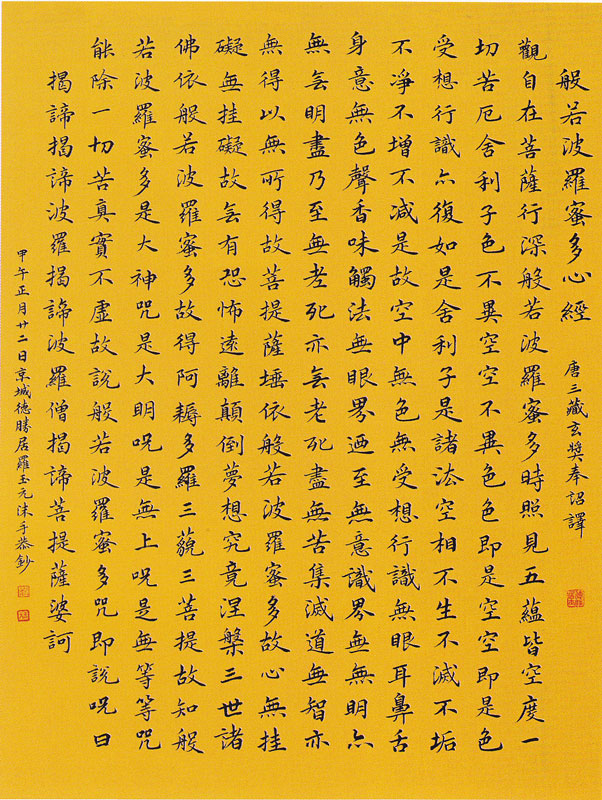 般若波羅蜜多心經
唐三藏玄奘奉詔譯
觀自在菩薩行深般若波羅蜜多時照見五蘊皆空度一
切苦厄舍利子色不異空空不異色色即是空空即是色
受想行識亦復如是舍利子是諸法空相不生不滅不垢
不淨不增不減是故空中無色無受想行識無眼耳鼻舌
身意無色聲香味觸法無眼界迺至無意識界無無明亦
無无明盡乃至無老死亦无老死盡無苦集滅道無智亦
無得以無所得故菩提薩埵依般若波羅蜜多故心無挂
礙無挂礙故无有恐怖遠離顛倒夢想究竟涅槃三世諸
佛依般若波羅蜜多故得阿耨多羅三藐三菩提故知般
若波羅蜜多是大神咒是大明咒是無上咒是無等等咒
能除一切苦真實不虛故說般若波羅蜜多咒即說咒曰
揭諦揭諦波羅揭諦波羅僧揭諦菩提薩婆訶
甲午正月廿二日京城德勝居羅玉元沫手恭鈔